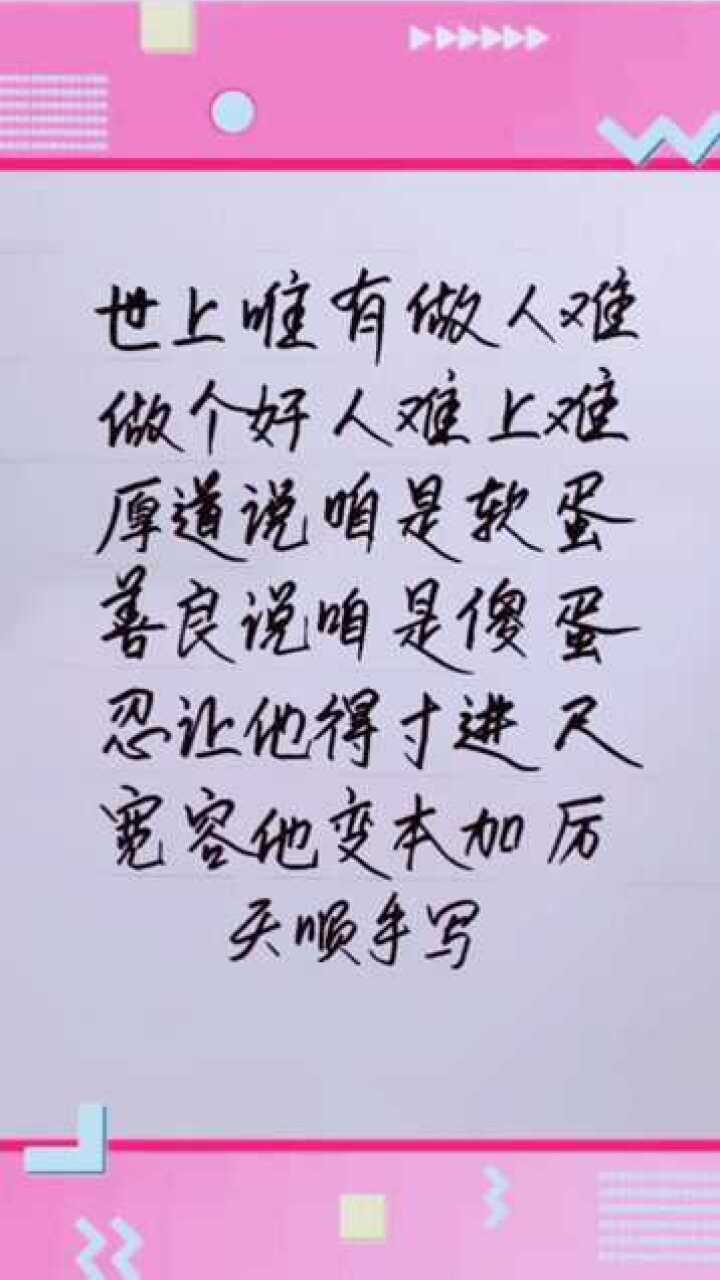 世上唯有做人难
做个好人难上难
厚道说咱是软蛋
善良说咱是傻蛋
忍让他得寸进尺
宽容他变本加厉
天顺手写